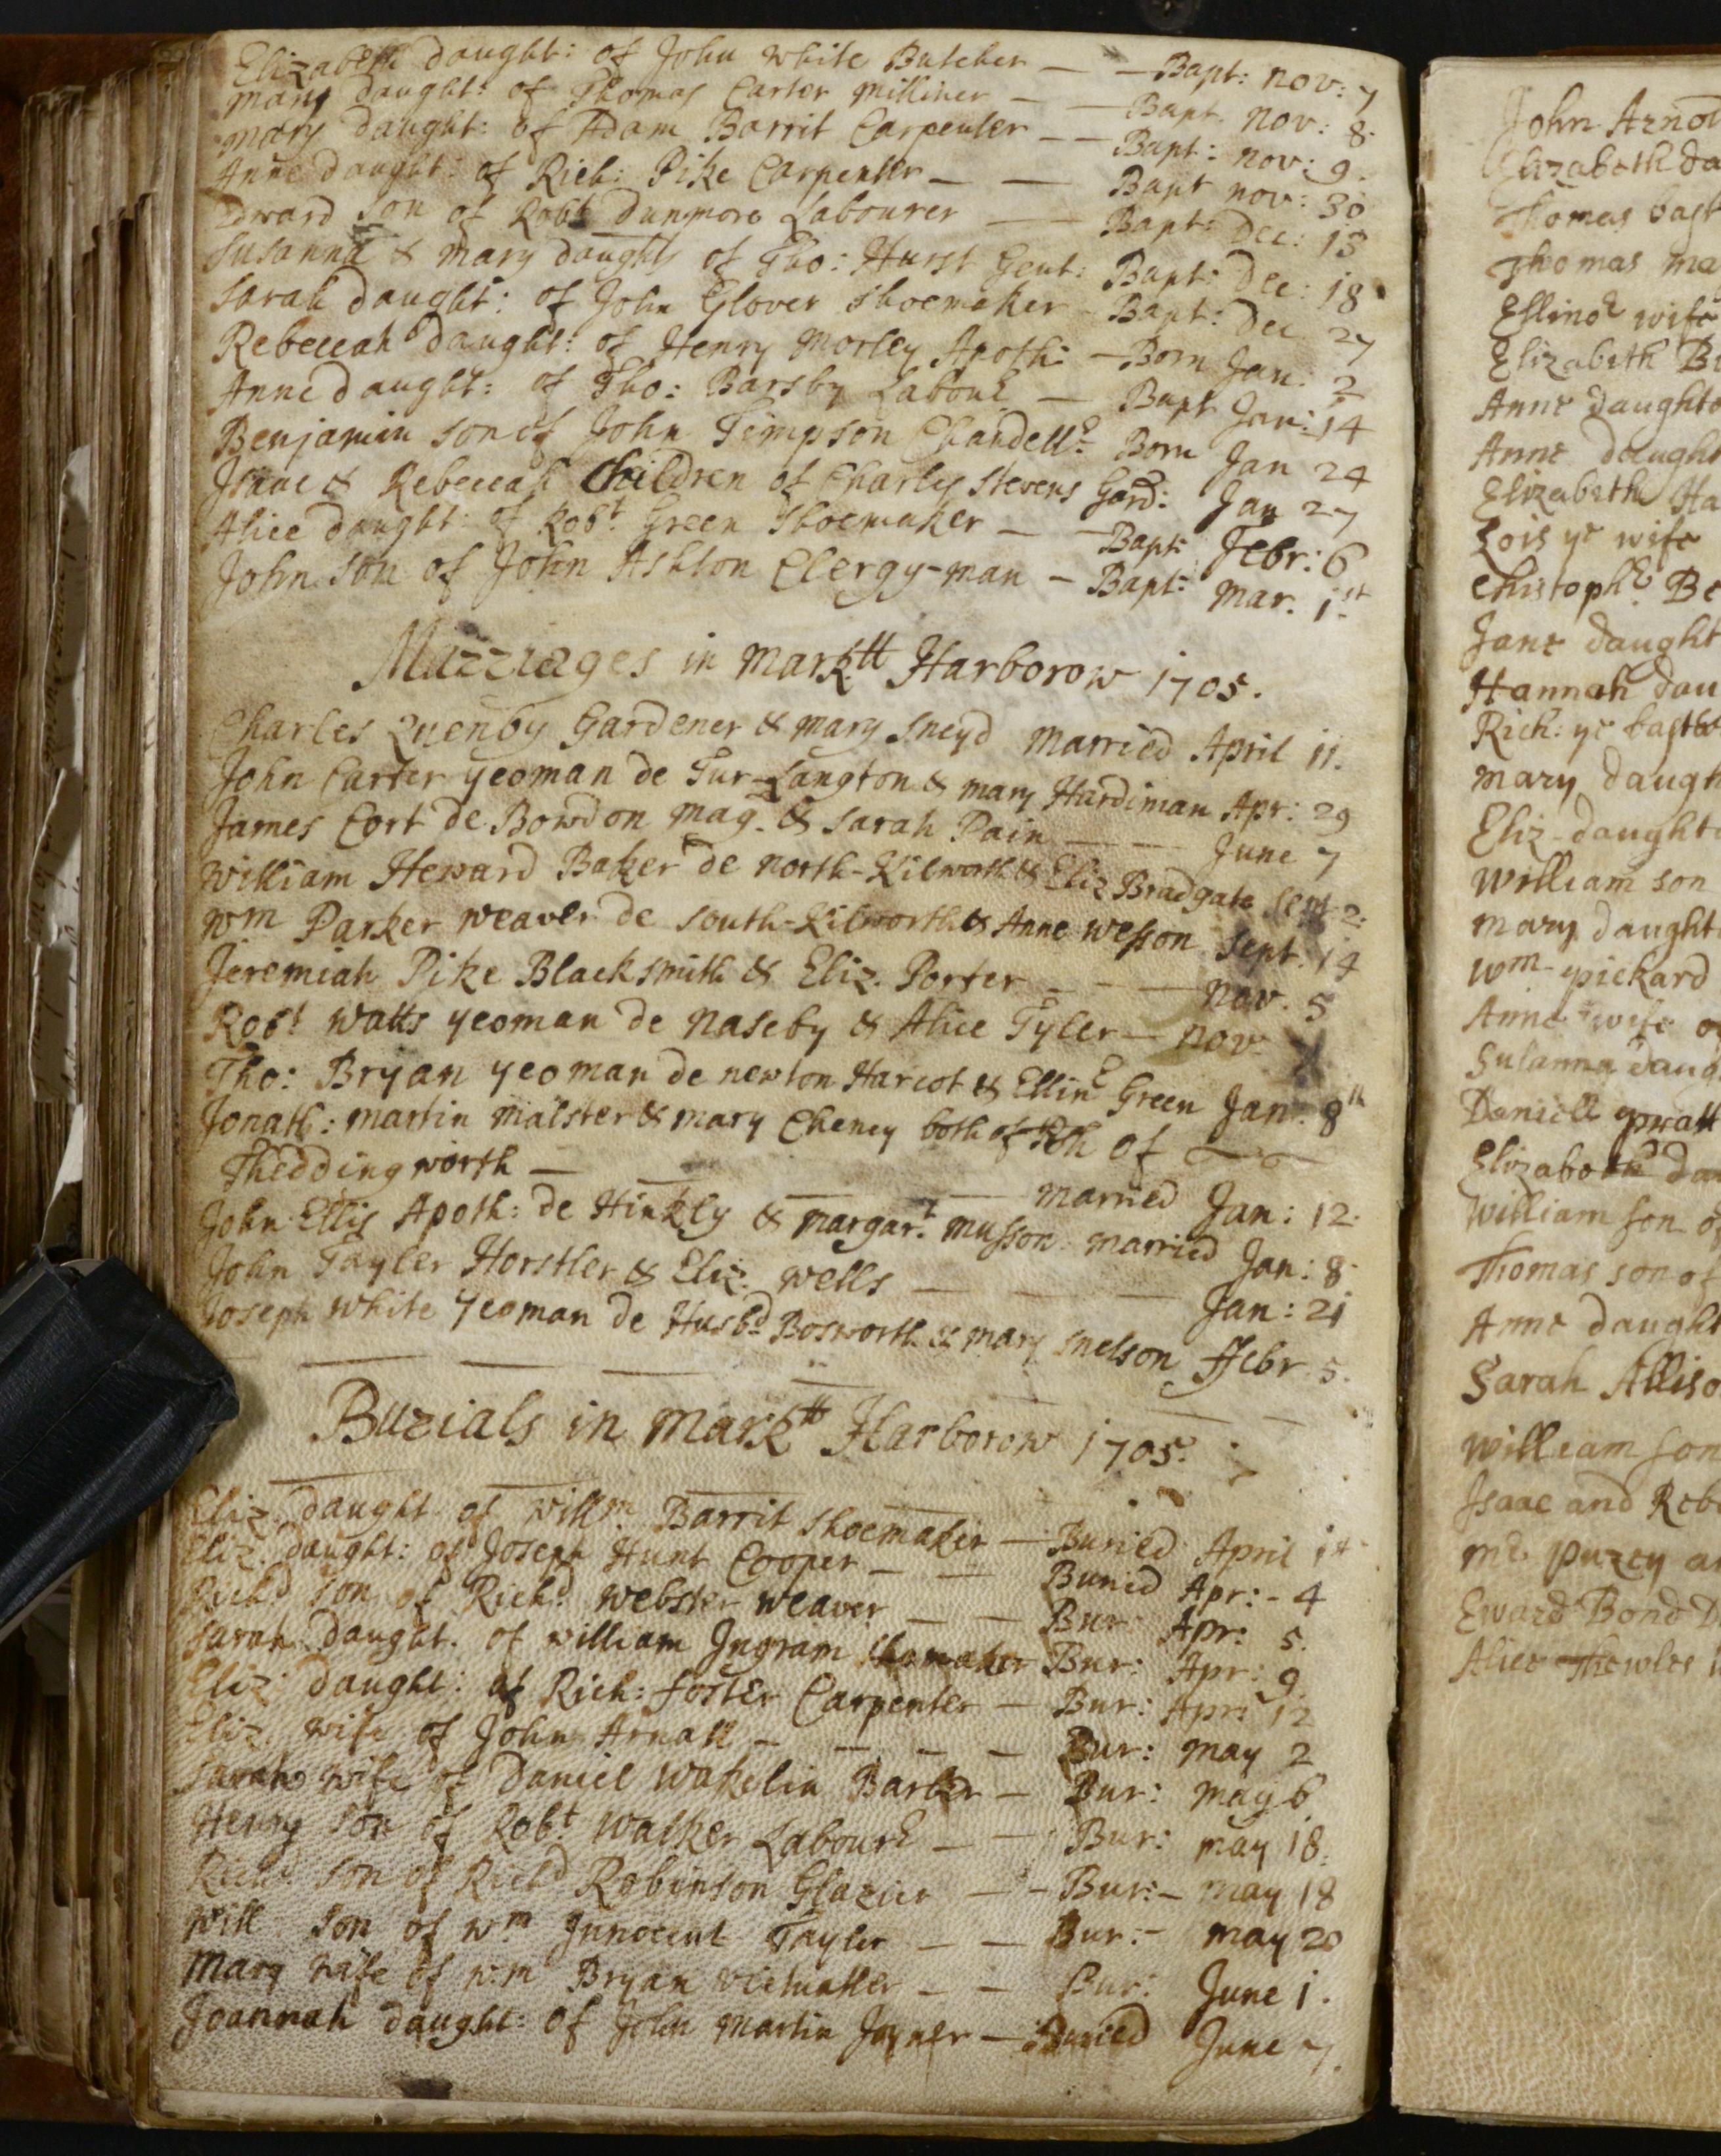 Elizabeth daught: of John White Butcher — — Bapt: Nov: 7
Mary daught: of Thomas Carter Milliner — — Bapt. Nov: 8
Mary daught: of Adam Barrit Carpenter — — Bapt: Nov: 9.
Anne daught: of Rich: Pike Carpenter — — Bapt Nov: 30
Edward son of Robt Dunmore Labourer — — Bapt: Dec: 13
Susanna & Mary daughts of Tho: Hurst Gent: Bapt: Dec: 18
Sarah daught: of John Glover Shoemaker - Bapt: Dec 27
Rebeccah daught: of Henry Morley Apoth: — Born Jan: 2
Anne daught: of Tho: Barsby Labourr — Bapt Jan: 14
Benjamin son of John Timpson Chandellr Born Jan 24
Isaac & Rebeccah Children of Charles Stevens Gard: Jan 27
Alice daught: of Robt Green Shoemaker — — Bapt: Febr: 6
John son of John Ashton Clergy-man — Bapt: Mar. 1st
Marriages in Marktt Harborow 1705.
Charles Quenby Gardener & Mary Sneyd Married April 11.
John Carter yeoman de Tur-Langton & Mary Hardiman Apr: 29
James Cort de Bowdon Mag. & Sarah Pain — — June 7
William Heward Baker de North-Kilworth & Eliz Bradgate Sept 2:
Wm Parker Weaver de South-Kilworth & Anne Wesson Sept. 14
Jeremiah Pike Blacksmith & Eliz. Porter — — — Nov. 5
Robt Watts yeoman de Naseby & Alice Tyler — Nov
Tho: Bryan yeoman de Newton Harcot & Ellinr Green Jan: 8th
Jonath: Martin Malster & Mary Cheney both of of
Theddingworth — — — — Married Jan: 12.
John Ellis Apoth: de Hinkly & Margart Musson Married Jan: 8.
John Tayler Horstler & Eliz. Wells — — — Jan: 21
Joseph White Yeoman de Husbd Bosworth & Mary Snelson Ffebr 5.
Burials in Marktt Harborow 1705.
Eliz. daught of Willm Barrit Shoemaker — Buried April 1st
Eliz. daught: of Joseph Hunt Cooper — — Buried Apr: - 4
Richd son of Richd Webster Weaver — — Bur: Apr: 5.
Sarah daught. of William Ingram Shomaker Bur: Apr: 9
Eliz: daught: of Rich: Foster Carpenter — Bur: Apr: 12
Eliz. wife of John Arnall — — — — Bur: May 2
Sarah wife of Daniel Wakelin Barber — Bur: May 6
Henry son of Robt Walker Labourr — — Bur: May 18.
Richd son of Richd Robinson Glazier — - Bur: - May 18
Will son of Wm Innocent Tayler — — Bur: - May 20
Mary wife of Wm Bryan Victualler — — Bur: June 1.
Joannah daught: of John Martin Joyner — Buried June 7.
John Arnol
Elizabeth da
Thomas bast
Thomas Ma
Ellinor wife
Elizabeth B
Anne daughte
Anne daught
Elizabeth Ha
Lois ye wife
Christophr Be
Jane daught
Hannah dau
Rich: ye
Mary daugh
Eliz - daught
William son
Mary daught
Wm Pickard
Anne wife o
Susanna daug
Daniell
Elizabeth dau
William son o
Thomas son of
Anne daught
Sarah Alliso
William son
Isaac and Reb
Mr Purzey a
Eward Bond D
Alice